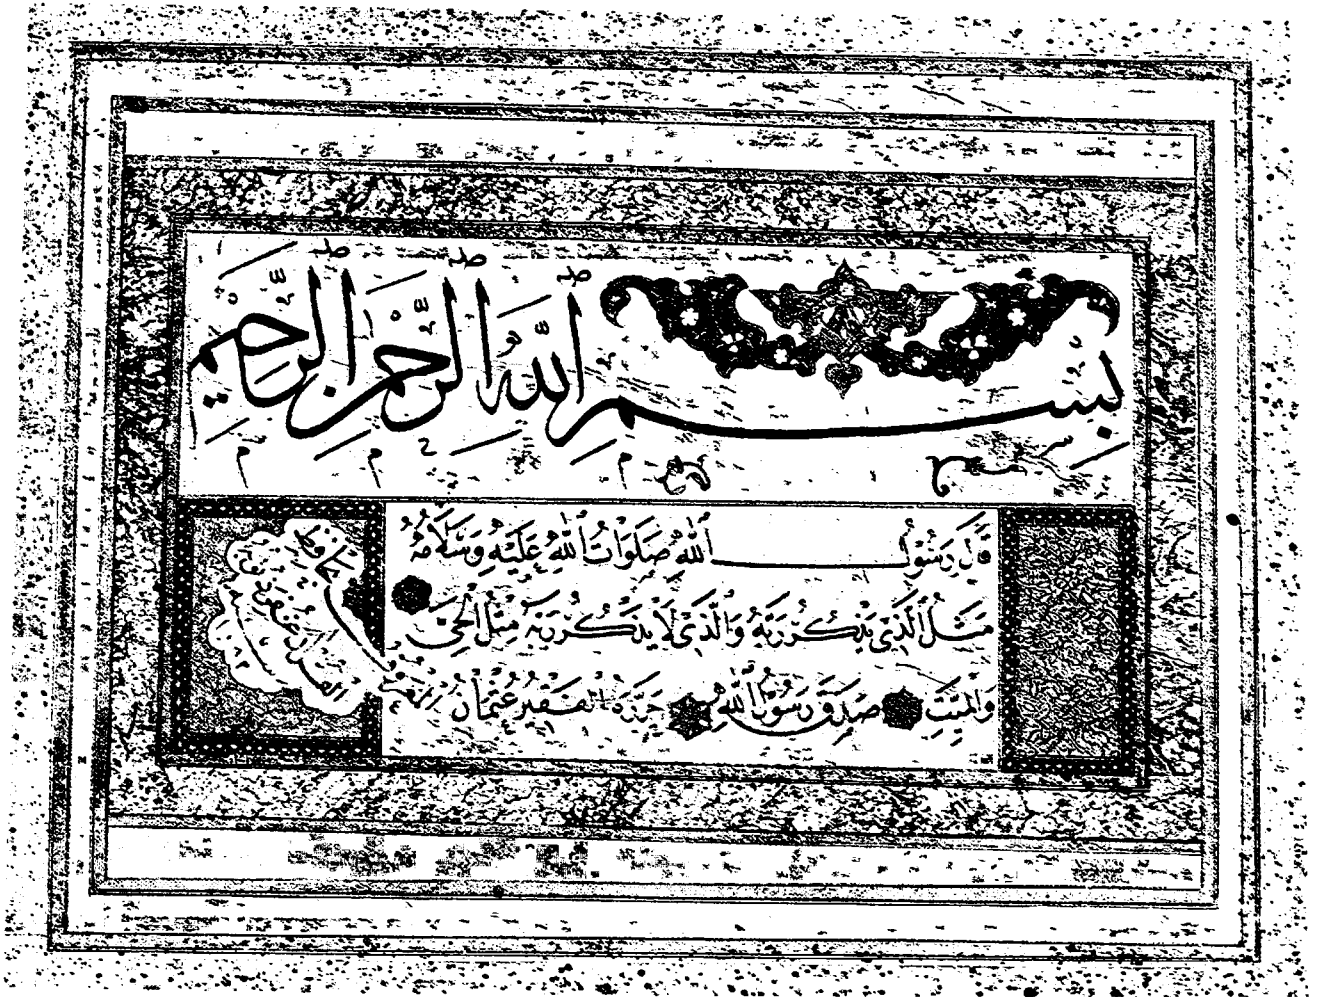 بسم الله الرحمن الرحيم
قَالَ رَسُولُ اللهِ صَلَوَاتُ اللهِ عَلَيْهِ وَسَلَامُهُ
مَثَلُ الَّذِي يَذْكُرُ رَبَّهُ وَالَّذِي لَا يَذْكُرُ رَبَّهُ مِثْلُ الْحَيِّ
وَالْمَيِّتِ صَدَقَ رَسُولُ اللهِ حَرَّرَهُ الْفَقِيرُ عُثْمَانُ